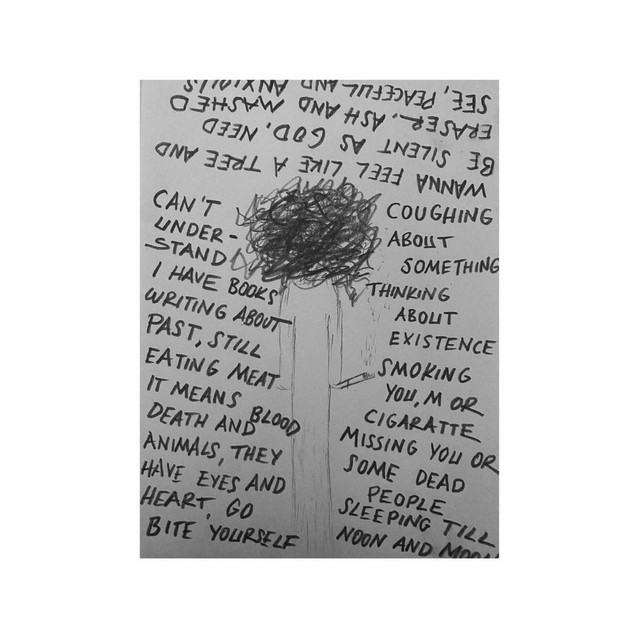 WANNA FEEL LIKE A TREE AND
BE SILENT AS GOD, NEED
ERASER, ASH AND WASHED
SEE, PEACEFUL AND ANXIOUS
CAN'T
UNDER-
STAND
I HAVE BOOKS
WRITING ABOUT
PAST, STILL
EATING MEAT
IT MEANS BLOOD
DEATH AND
ANIMALS, THEY
HAVE EYES AND
HEART, GO
BITE YOURSELF
COUGHING
ABOUT
SOMETHING
THINKING
ABOUT
EXISTENCE
SMOKING
YOU, M OR
CIGARATTE
MISSING YOU OR
SOME DEAD
PEOPLE
SLEEPING TILL
NOON AND MOON